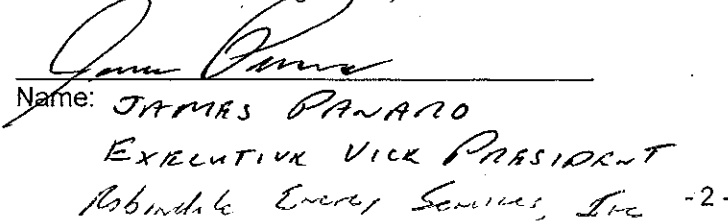 Name: JAMES PANARO
EXECUTIVE VICE PRESIDENT
Robindale Energy Services, Inc -2-